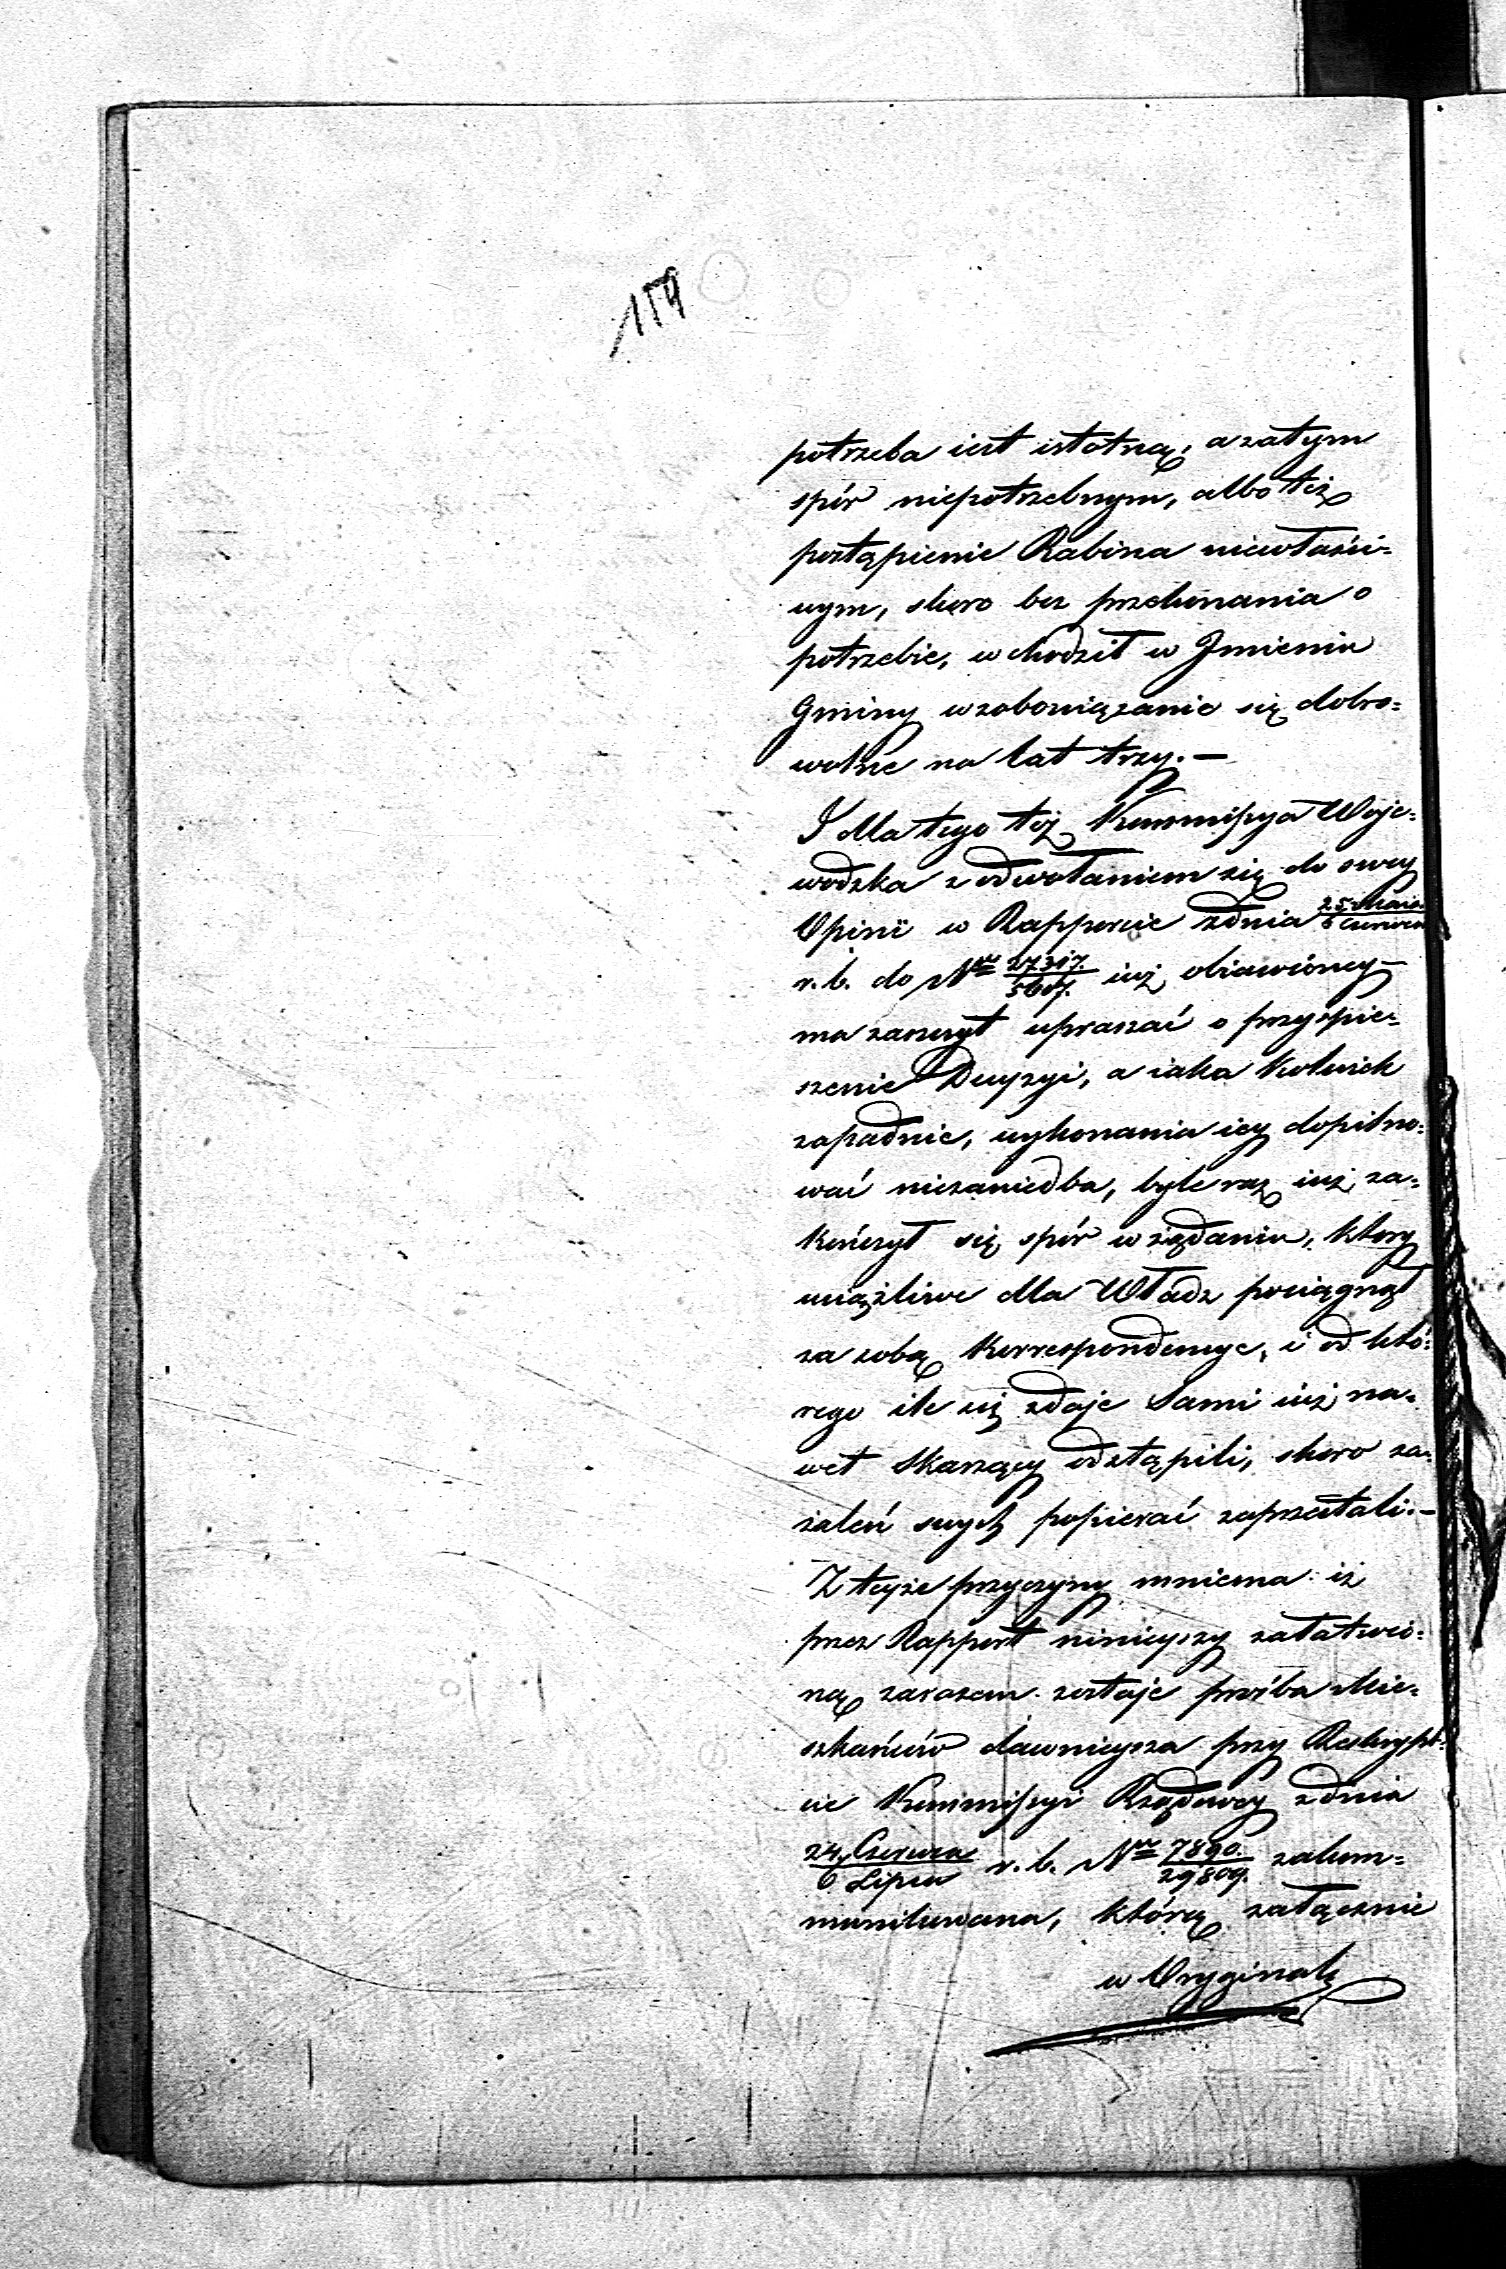 159
potrzeba iest istotną, a zatym
spór niepotrzebnym, albo też
postąpienie Rabina niewłaści=
wym, skoro bez przekonania o
potrzebie, wchodził w Jmieniu
Gminy w zobowiązanie się dobro=
wolne na lat trzy. —
I dla tego też Kommissya Woje=
wodzka z odwołaniem się do swey
Opinii w Rapporcie z dnia 25 Maia / 6 Czerwca
r. b. do Nru 27317. / 5607. iuż obiawioney —
ma zaszczyt upraszać o przyspie=
szenie Decyzyi, a iaka kolwiek
zapadnie, wykonania iey dopilno=
wać niezaniedba, byle raz iuż za=
kończył się spór w żądaniu, który
uciążliwe dla Władz pociągnął
za sobą Korrespondencye, i od któ=
rego ile się zdaje sami iuż na=
wet skarżący odstąpili, skoro za=
żaleń swych popierać zaprzestali. —
Z teyże przyczyny mniema iż
przez Rapport ninieyszy załatwio=
ną zarazem zostaje prośba Mie=
szkańców dawnieysza przy Reskryp=
cie Kommissyi Rządowey z dnia
24 Czerwca / 6 Lipca r. b. Nru 7890. / 29809. zakom=
munikowana, którą załącznie
w Oryginale